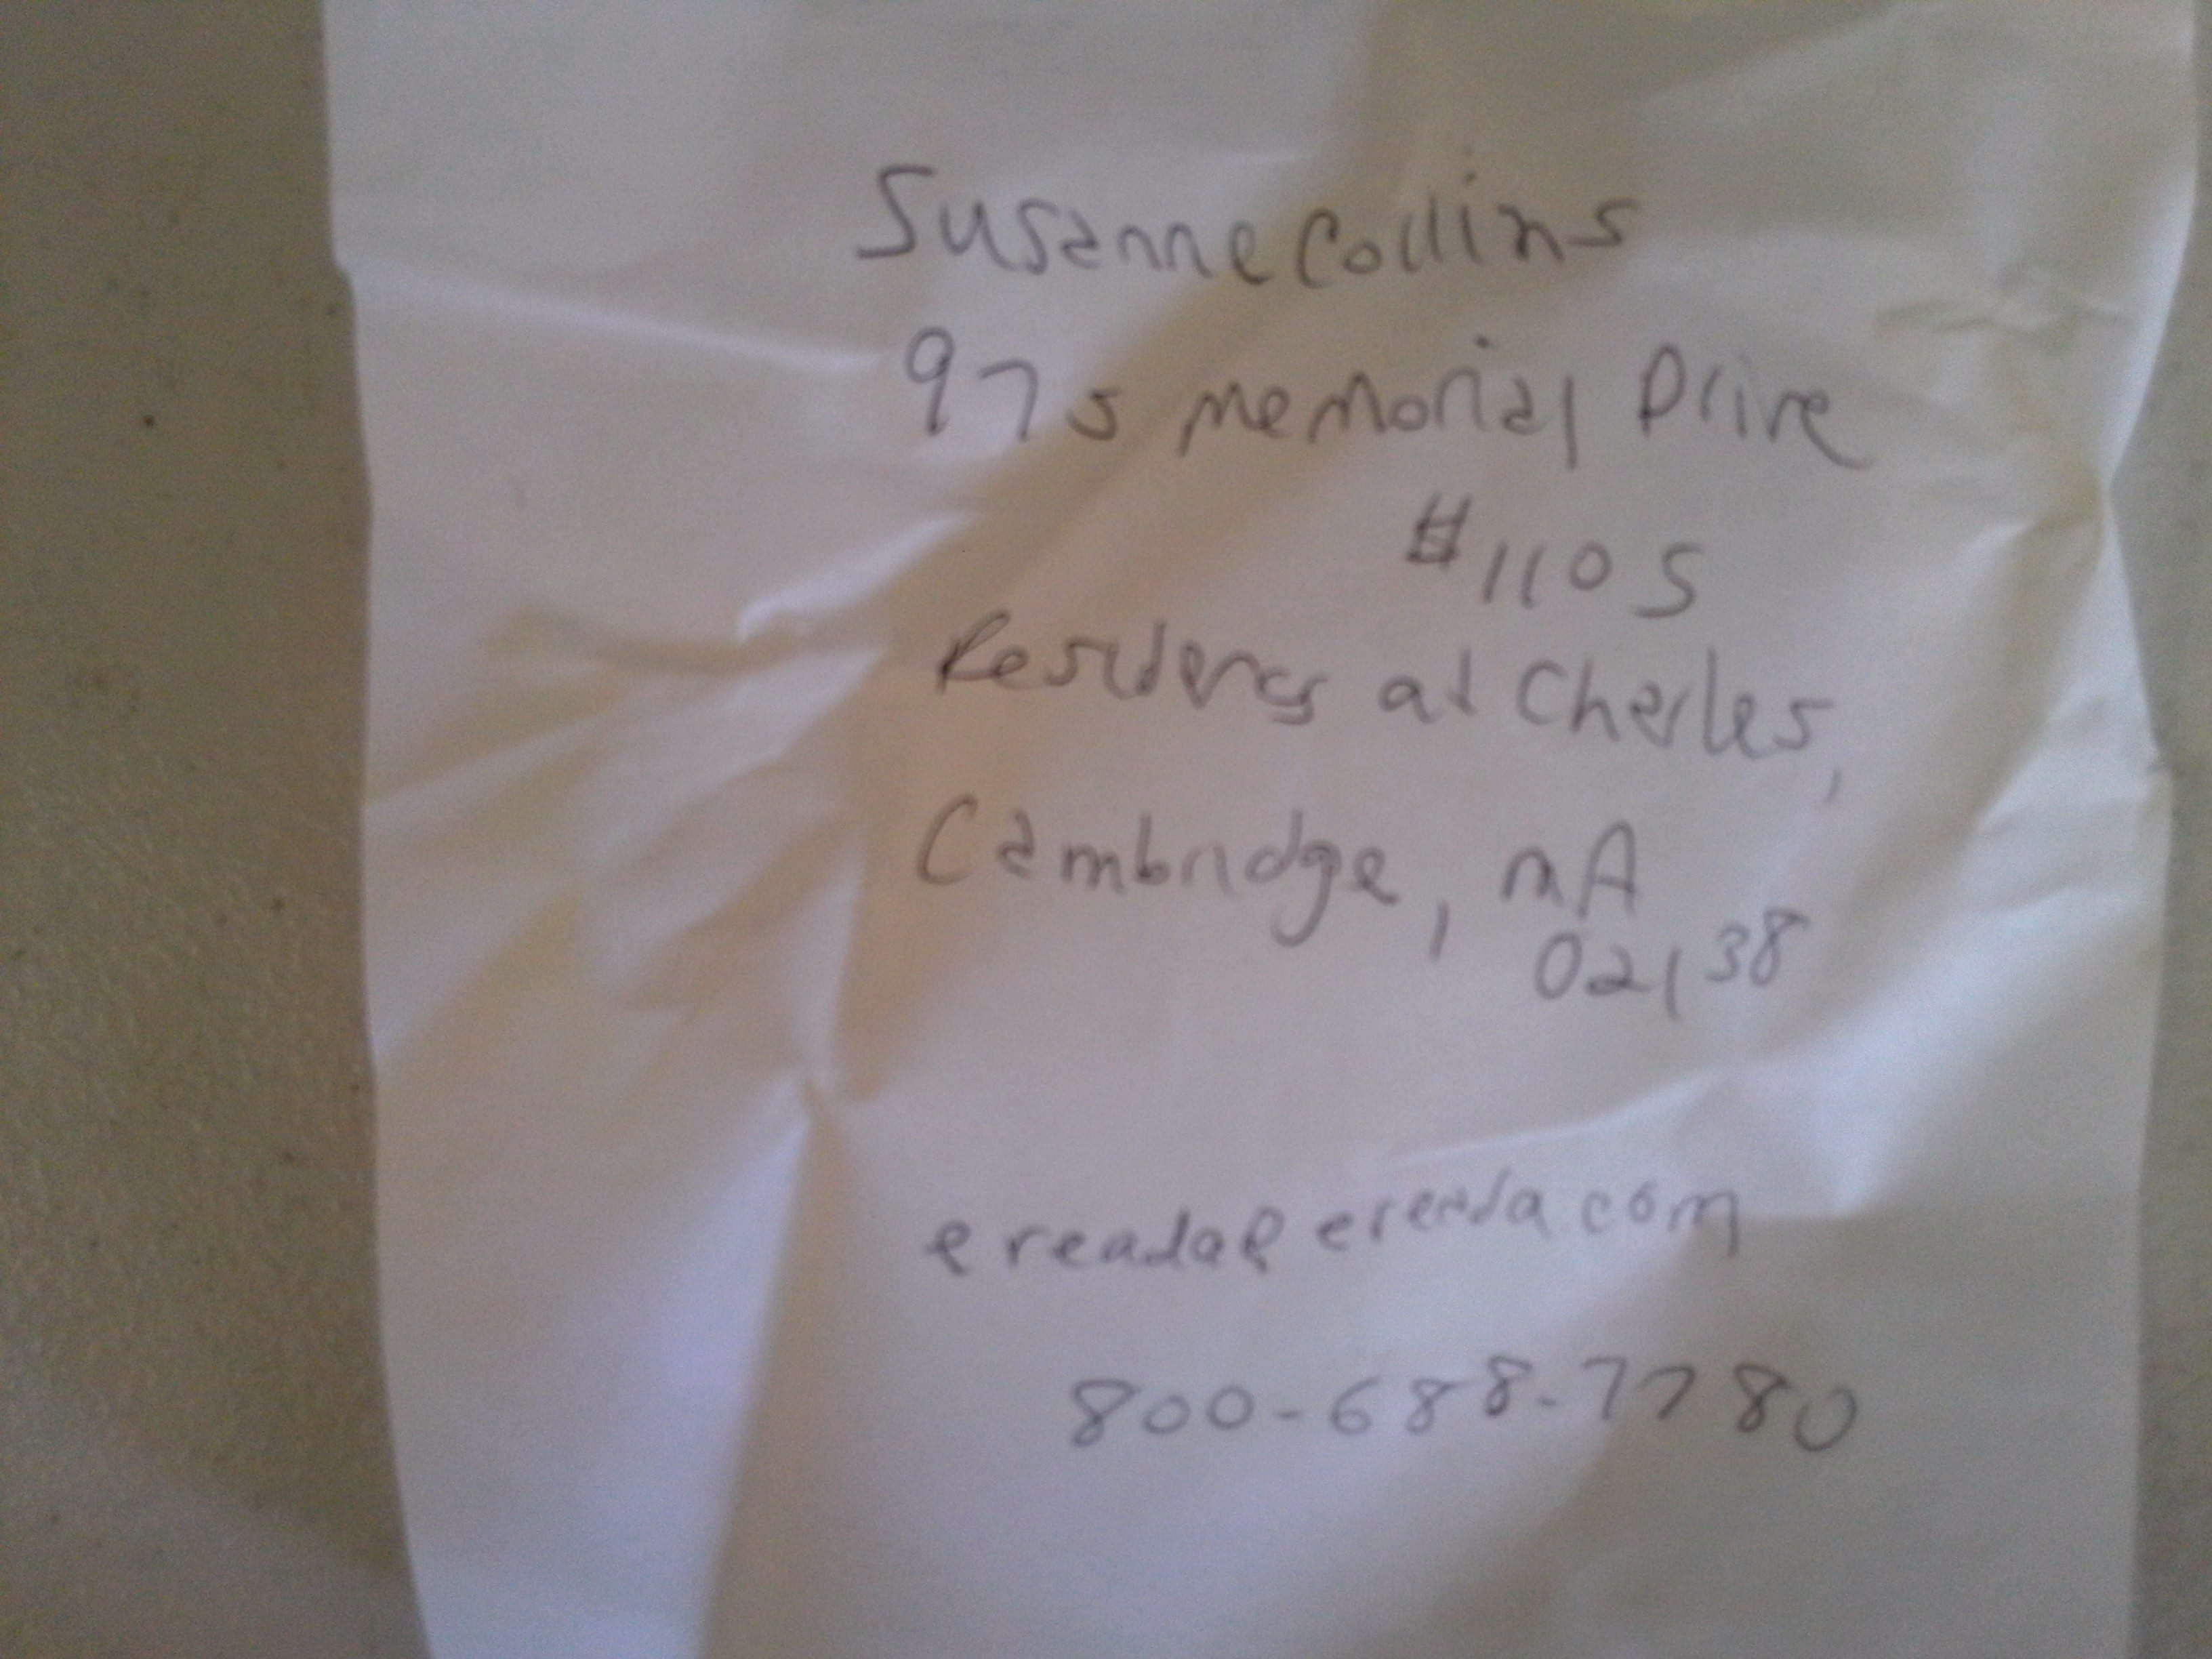 Susanne Collins
975 Memorial Drive
#1105
Residency at Charles,
Cambridge, MA
02138
com
800-688-7780